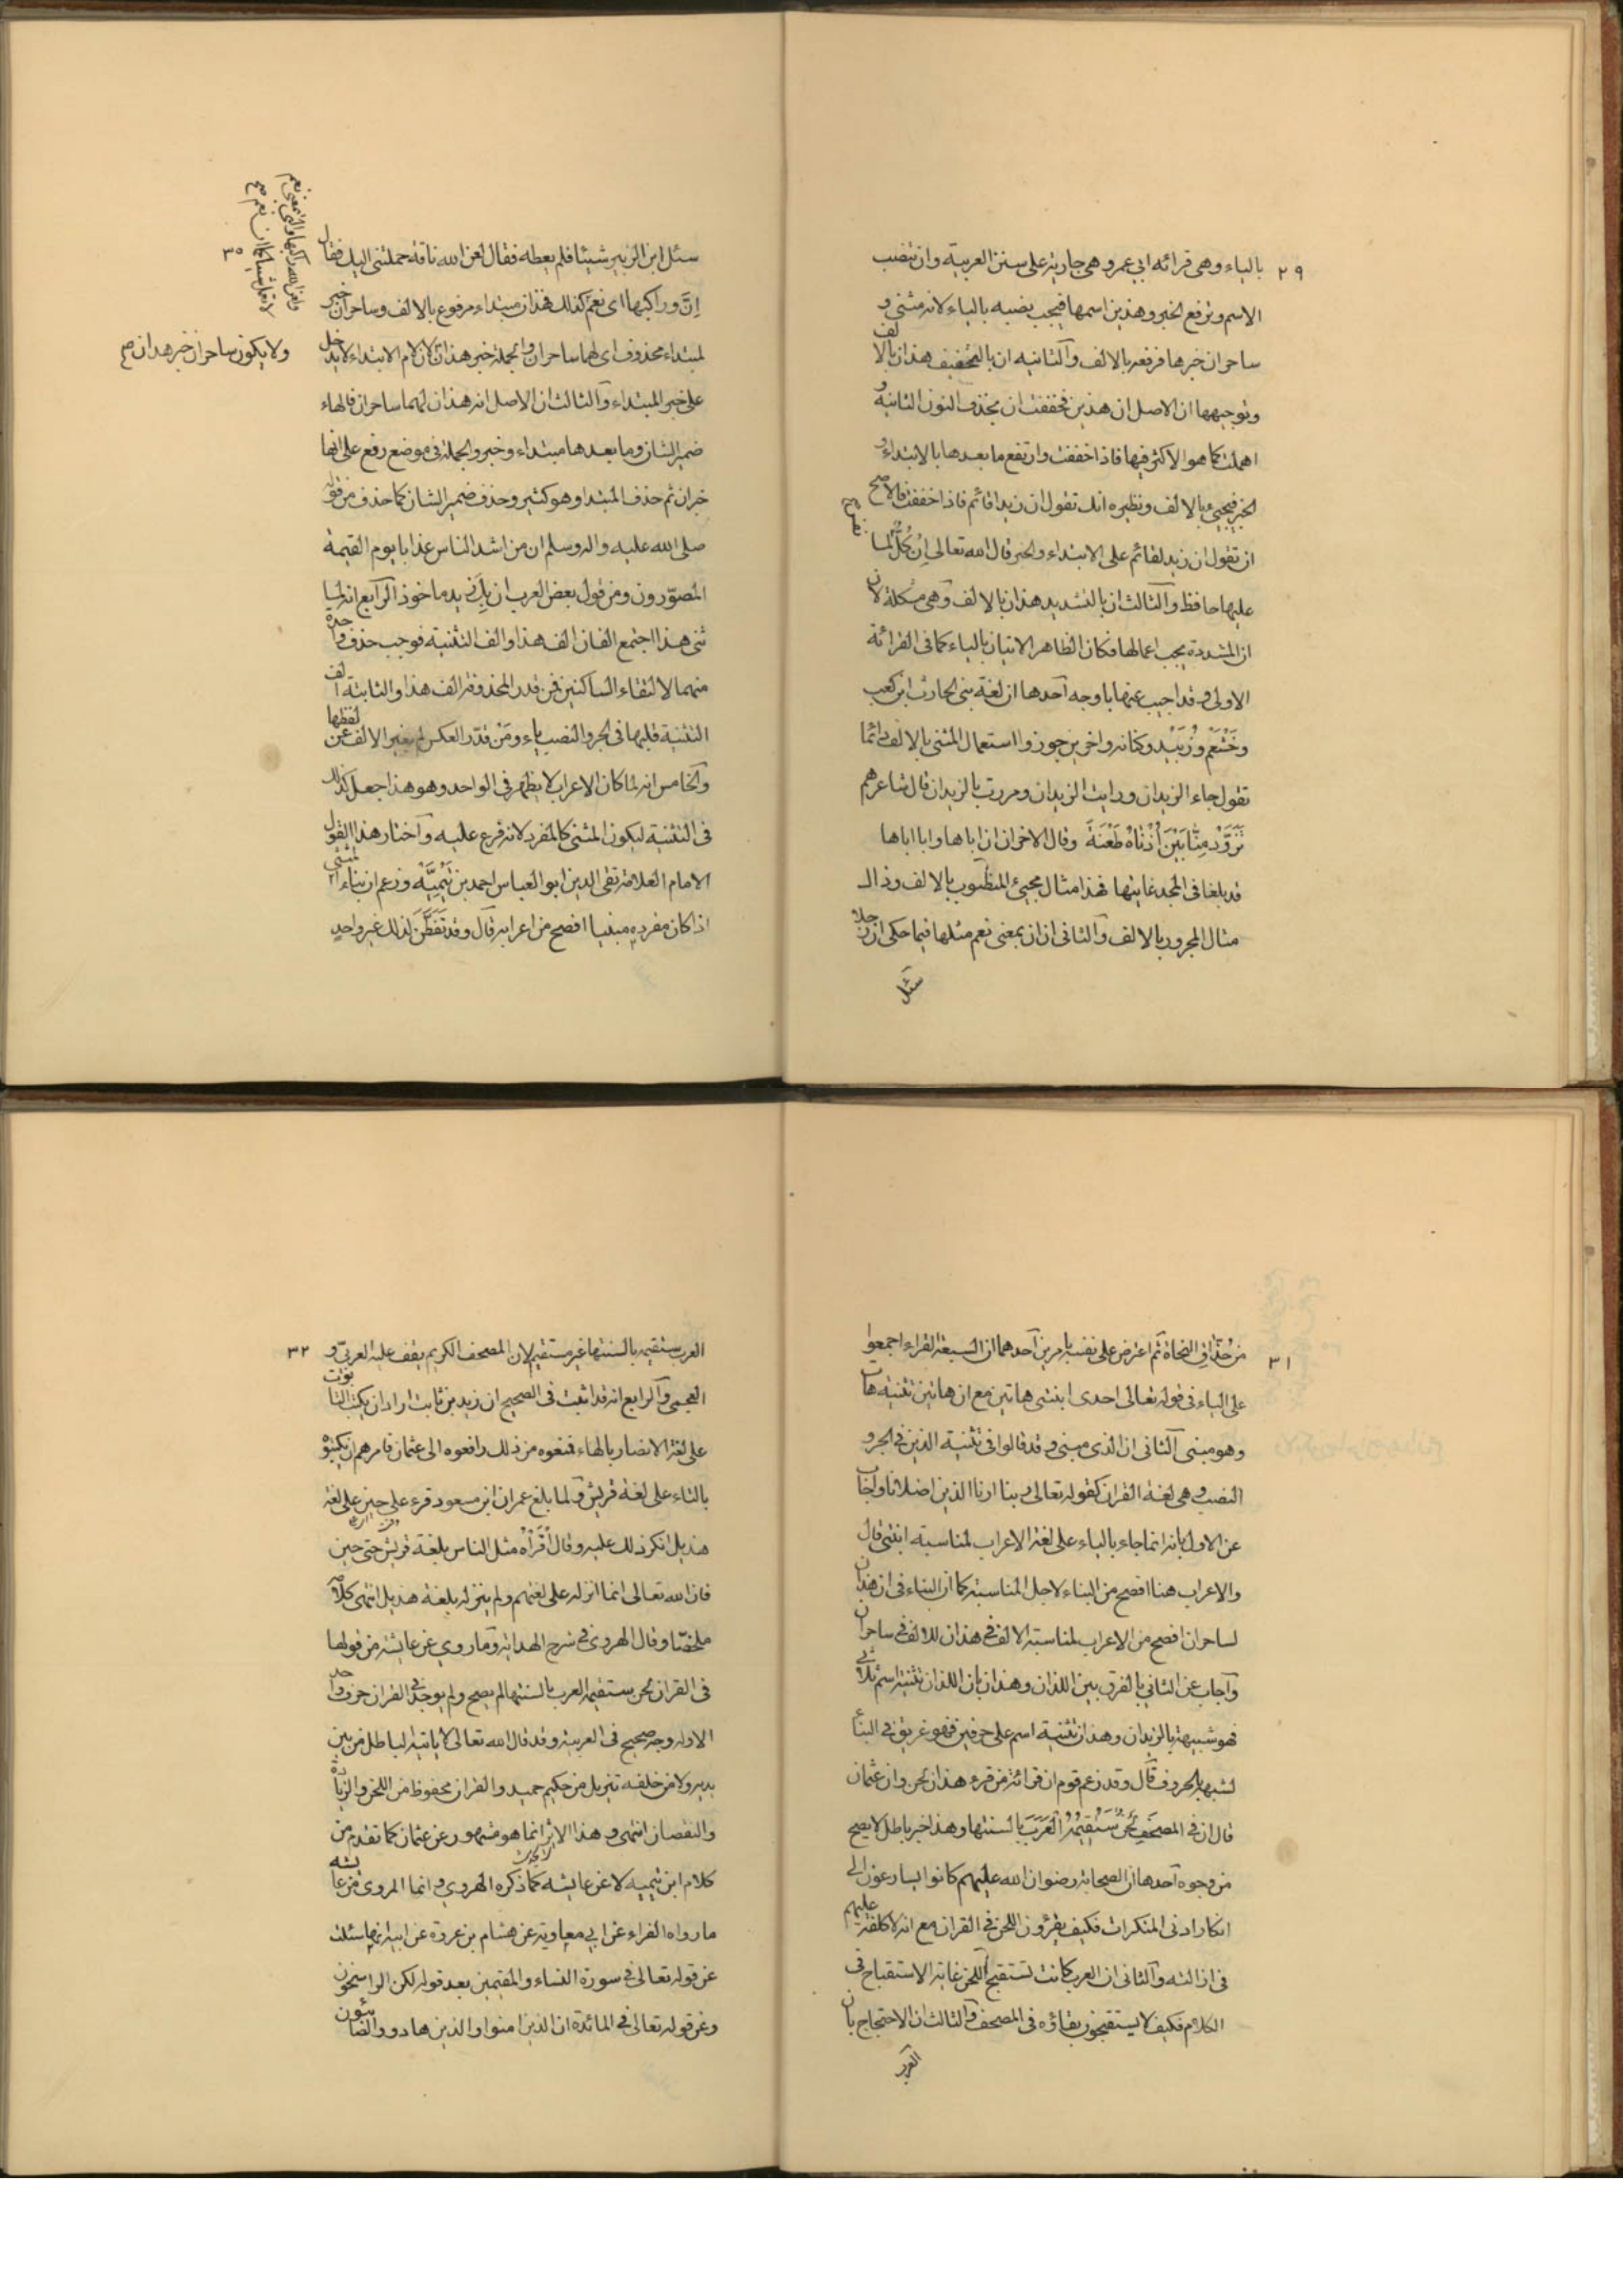 ٢٩
بالياء وهى قرائه ابي عمرو هى جارية على سنن العربية وان تنصب
الاسم وترفع الخبر وهذين اسمها فيجب نصبه بالياء لانه مثنى و
ساحران خبرها فرفعه بالالف والثانيه ان بالتخفيف هذان بالالف
وتوجيهها ان الاصل ان هذين فخففت ان بحذف النون الثانية و
اهملت كما هو الاكثر فيها فاذا خففت وارتفع ما بعدها بالابتداء و
الخبر فيجيئ بالالف ونظيره انك تقول ان زيدا قائم فاذا خففت فالاصح
ان تقول ان زيد لقائم على الابتداء والخبر قال الله تعالى اِن كُلُّ نفس لما
عليها حافظ والثالث ان بالتشديد هذان بالالف وهى مشكلة لان
ان المشددة يجب اعمالها فكان الظاهر الاتيان بالياء كما فى القرائة
الاولى وقد اجيب عنها باوجه احدها ان لغة بنى الحارث ابن كعب
وخَثْعَم وزُبَيْد وكنانه واخرين جوزوا استعمال المثنى بالالف دائما
تقول جاء الزيدان ورايت الزيدان ومررت بالزيدان قال شاعرهم
تَزَوَّدَ مِنّا بَيْنَ أُذْنَاهُ طَعْنَةً وقال الاخر ان اباها وابا اباها
قد بلغا فى المجد غايتها فهذا مثال مجيئ المنصوب بالالف وذاك
مثال المجرور بالالف والثانى ان ان بمعنى نعم مثلها فيما حكى ان رجلا
سئل
٣٠
سئل ابن الزبير شيئا فلم يعطه فقال لعن الله ناقة حملتنى اليك فقال
اِنَّ وراكبها اى نعم كذلك فهذان مبتداء مرفوع بالالف وساحران خبر
لمبتداء محذوف اى لهما ساحران والجملة خبر هذان لان لام الابتداء لا يدخل
ولا يكون ساحران خبر هذان صح
على خبر المبتداء والثالث ان الاصل انه هذان لهما ساحران فالهاء
ضمير الشان وما بعدها مبتداء وخبر والجملة فى موضع رفع على انها
خبر ان ثم حذف المبتدا وهو كثير وحذف ضمير الشان كما حذف من قوله
صلى الله عليه واله وسلم ان من اشد الناس عذابا يوم القيمة
المصوّرون ومن قول بعض العرب ان بِكَ زيد ماخوذ الرابع انه لما
ثنى هذا اجتمع الفان الف هذا والف التثنية فوجب حذف واحدة
منهما لالتقاء الساكنين فمن قدر المحذوفة الف هذا والثابتة الف
التثنية قلبها فى الجر والنصب ياء ومَنْ قدّر العكس لم يغير الالف عن لفظها
والخامس انه لما كان الاعراب لا يظهر فى الواحد وهو هذا جعل كذلك
فى التثنية ليكون المثنى كالمفرد لانه فرع عليه واختار هذا القول
الامام العلامة تقى الدين ابو العباس احمد بن تَيْمِيَّه وزعم ان بناء المثنى
اذا كان مفرده مبنيا افصح من اعرابه قال وقد تَفَطَّنَ لذلك غير واحدٍ
٣١
من حُذّاق النحاة ثم اعترض على نفسه بامرين احدهما ان السبعة القراء اجمعوا
على الياء فى قوله تعالى احدى ابنتى هاتين مع ان هاتين تثنية هات
وهو مبنى الثانى ان الذى مبنى وقد قالوا فى تثنية الذين فى الجر و
النصب وهى لغة القران كقوله تعالى ربنا ارنا الذين اضلانا واجاب
عن الاول بانه انما جاء بالياء على لغة الاعراب لمناسبته ابنتى قال
والاعراب هنا افصح من البناء لاجل المناسبة كما ان البناء فى ان هذان
لساحران افصح من الاعراب لمناسبة الالف فى هذان للالف فى ساحران
واجاب عن الثانى بالفرق بين اللذان وهذان بان اللذان تثنية اسم ثلاثى
فهو شبيهة بالزيدان وهذان تثنية اسم على حرفين فهو غريق فى البناء
لشبهه بالحروف قال وقد زعم قوم ان قرائة من قرء هذان لحن وان عثمان
قال ان فى المصحف لحن سَتُقِيْمُهُ الْعَرَبَ بالسنتها وهذا خبر باطل لا يصح
من وجوه احدها ان الصحابة رضوان الله عليهم كانوا يسارعون الى
انكار ادنى المنكرات فكيف يقرؤون اللحن فى القران مع انه لا كلفة عليهم
فى ازالته والثانى ان العرب كانت تستقبح اللحن غاية الاستقباح فى
الكلام فكيف لا يستقبحون بقاؤه فى المصحف والثالث ان الاحتجاج بان
العرب
٣٢
العرب ستقيمه بالسنتها غير مستقيم لان المصحف الكريم يقف عليه العربى و
العجمى والرابع انه قد اثبت فى الصحيح ان زيد بن ثابت اراد ان يكتب التابوت
على لغة الانصار بالهاء فمنعوه من ذلك رافعوه الى عثمان فامرهم ان يكتبوه
بالتاء على لغة قريش ولما بلغ عمر ان ابن مسعود قرء على حين على لغة
هذيل انكر ذلك عليه وقال أقْرَأْهُ مثل الناس بلغة قريش حتى حين
فان الله تعالى انما انزله على لغتهم ولم ينزله بلغة هذيل انتهى كلامه
ملخصّا وقال الهروى فى شرح الهداية وما روي عن عايشة من قولها
فى القران لحن ستقيمه العرب بالسنتها لم يصح ولم يوجد فى القران حرف واحد
الا وله وجه صحيح فى العربية وقد قال الله تعالى لا ياتيه الباطل من بين
يديه ولا من خلفه تنزيل من حكيم حميد والقران محفوظ من اللحن والزيادة
والنقصان انتهى وهذا الاثر انما هو مشهور عن عثمان كما تقدم من
كلام ابن تيميه لا عن عايشه كما ذكره الهروي وانما المروى عن عايشه
ما رواه الفراء عن ابي معاوية عن هشام بن عروة عن ابيه انها سئلت
عن قوله تعالى فى سورة النساء والمقيمين بعد قوله لكن الراسخون
وعن قوله تعالى فى المائدة ان الذين امنوا والذين هادوا والصابئون